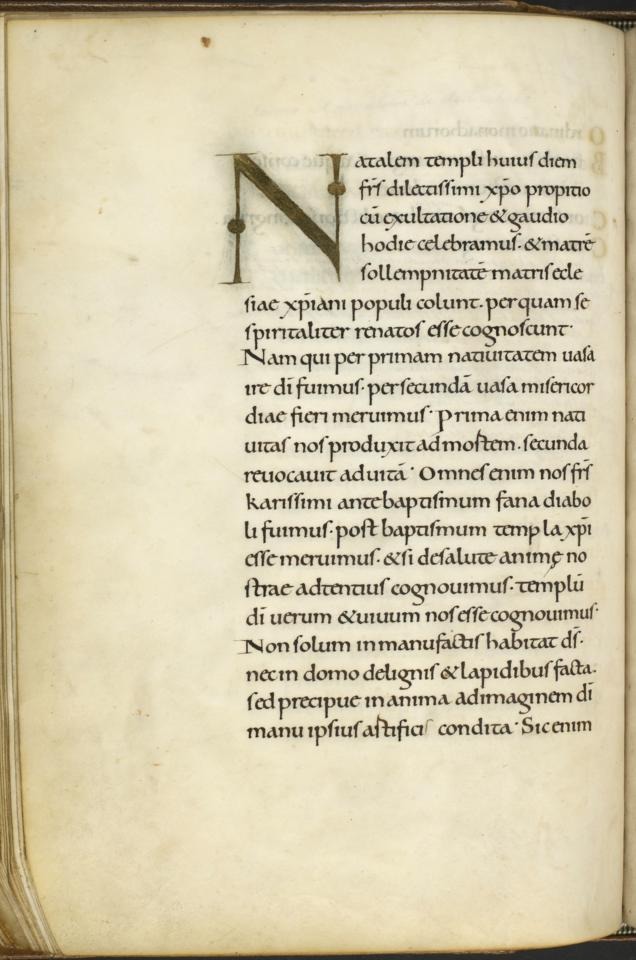 Natalem templi huius diem
frs̄ dilectissimi xp̄o propitio
cū exultatione & gaudio
hodie celebramus· & matrē
sollempnitatē matris ecle
siae xp̄iani populi colunt· per quam se
spiritaliter renatos esse cognoscunt·
Nam qui per primam natiuitatem uasa
irę dī fuimus· per secundā uasa misericor
diae fieri meruimus· Prima enim nati
uitas nos produxit ad mortem· secunda
reuocauit ad uitā· Omnes enim nos frs̄
karissimi ante baptismum fana diabo
li fuimus· post baptismum templa xp̄i
esse meruimus· & si de salute animę no
strae adtentius cognouimus· templū
dī uerum & uiuum nos esse cognouimus·
Non solum in manufactis habitat ds̄·
nec in domo de lignis & lapidibus facta·
sed precipue in anima ad imaginem dī
manu ipsius artificis condita· Sic enim